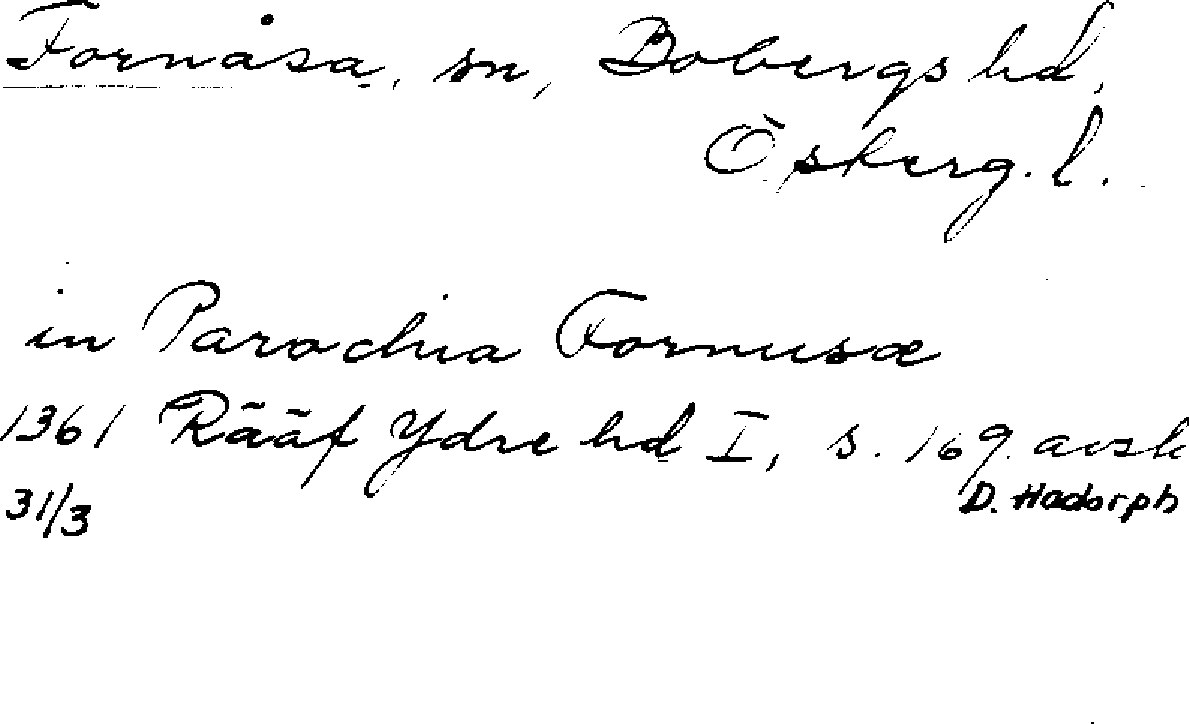 Fornåsa, sn, Bobergs hd,
Österg. l.
in Parochia Fornusæ
1361 Rääf Ydre hd I, s. 169. avsk
31/3 D. Hadorph